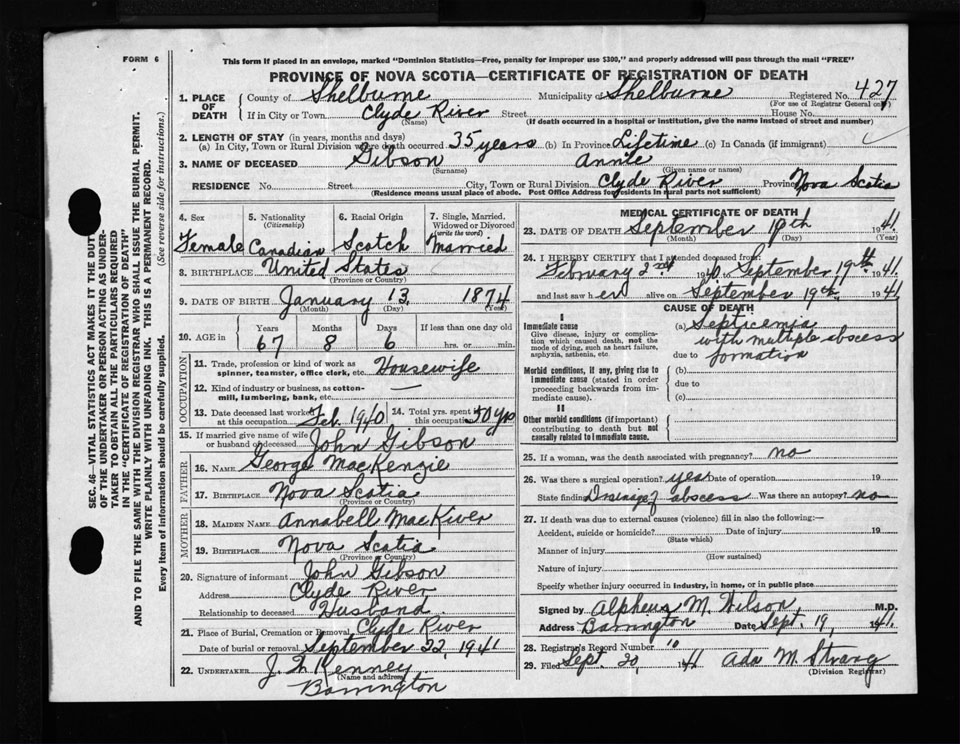 FORM 6
This form if placed in an envelope, marked "Dominion Statistics—Free, penalty for improper use $300," and properly addressed will pass through the mail "FREE"
PROVINCE OF NOVA SCOTIA—CERTIFICATE OF REGISTRATION OF DEATH
1. PLACE OF DEATH County of Shelburne Municipality of Shelburne Registered No. 427
(For use of Registrar General only)
If in City or Town Clyde River Street House No.
(Name) (If death occurred in a hospital or institution, give the name instead of street and number)
2. LENGTH OF STAY (in years, months and days)
(a) In City, Town or Rural Division where death occurred 35 years (b) In Province Lifetime (c) In Canada (if immigrant)
3. NAME OF DECEASED Gibson Annie
(Surname) (Given name or names)
RESIDENCE No. Street City, Town or Rural Division Clyde River Province Nova Scotia
(Residence means usual place of abode. Post Office Address for residents in rural parts not sufficient)
4. Sex 5. Nationality (Citizenship) 6. Racial Origin 7. Single, Married, Widowed or Divorced (write the word)
Female Canadian Scotch Married
8. BIRTHPLACE United States
(Province or Country)
9. DATE OF BIRTH January 13, 1874
(Month) (Day) (Year)
10. AGE in Years Months Days If less than one day old
67 8 6 hrs. or min.
OCCUPATION
11. Trade, profession or kind of work as spinner, teamster, office clerk, etc. Housewife
12. Kind of industry or business, as cotton-mill, lumbering, bank, etc. —
13. Date deceased last worked at this occupation Feb. 1940 14. Total yrs. spent in this occupation 50 yrs
15. If married give name of wife or husband of deceased John Gibson
FATHER
16. NAME George MacKenzie
17. BIRTHPLACE Nova Scotia
(Province or Country)
MOTHER
18. MAIDEN NAME Annabell MacKiver
19. BIRTHPLACE Nova Scotia
(Province or Country)
20. Signature of informant John Gibson
Address Clyde River
Relationship to deceased Husband
21. Place of Burial, Cremation or Removal Clyde River
Date of burial or removal September 22, 1941
22. UNDERTAKER Kenney
(Name and address)
Barrington
MEDICAL CERTIFICATE OF DEATH
23. DATE OF DEATH September 19th 1941.
(Month) (Day) (Year)
24. I HEREBY CERTIFY that I attended deceased from:
February 2nd 1940, September 19th 1941
and last saw her alive on September 19th 1941
CAUSE OF DEATH
I
Immediate cause
Give disease, injury or complication which caused death, not the mode of dying, such as heart failure, asphyxia, asthenia, etc.
(a) Septicemia
with multiple abscess
due to formation
Morbid conditions, if any, giving rise to immediate cause (stated in order proceeding backwards from immediate cause).
(b)
due to
(c)
II
Other morbid conditions (if important) contributing to death but not causally related to immediate cause.
25. If a woman, was the death associated with pregnancy? no
26. Was there a surgical operation? Date of operation 19
State finding Drainage of abscess Was there an autopsy? no
27. If death was due to external causes (violence) fill in also the following:—
Accident, suicide or homicide? Date of injury 19
(State which)
Manner of injury
(How sustained)
Nature of injury
Specify whether injury occurred in industry, in home, or in public place
Signed by Alpheus M. Wilson, M.D.
Address Barrington Date Sept. 19, 1941.
28. Registrar's Record Number 10
29. Filed Sept. 20, 1941 Ada M. Strang
(Division Registrar)
SEC. 46—VITAL STATISTICS ACT MAKES IT THE DUTY
OF THE UNDERTAKER OR PERSON ACTING AS UNDER-
TAKER TO OBTAIN ALL THE PARTICULARS REQUIRED
IN THE "CERTIFICATE OF REGISTRATION OF DEATH"
AND TO FILE THE SAME WITH THE DIVISION REGISTRAR WHO SHALL ISSUE THE BURIAL PERMIT.
WRITE PLAINLY WITH UNFADING INK. THIS IS A PERMANENT RECORD.
Every item of information should be carefully supplied. (See reverse side for instructions.)